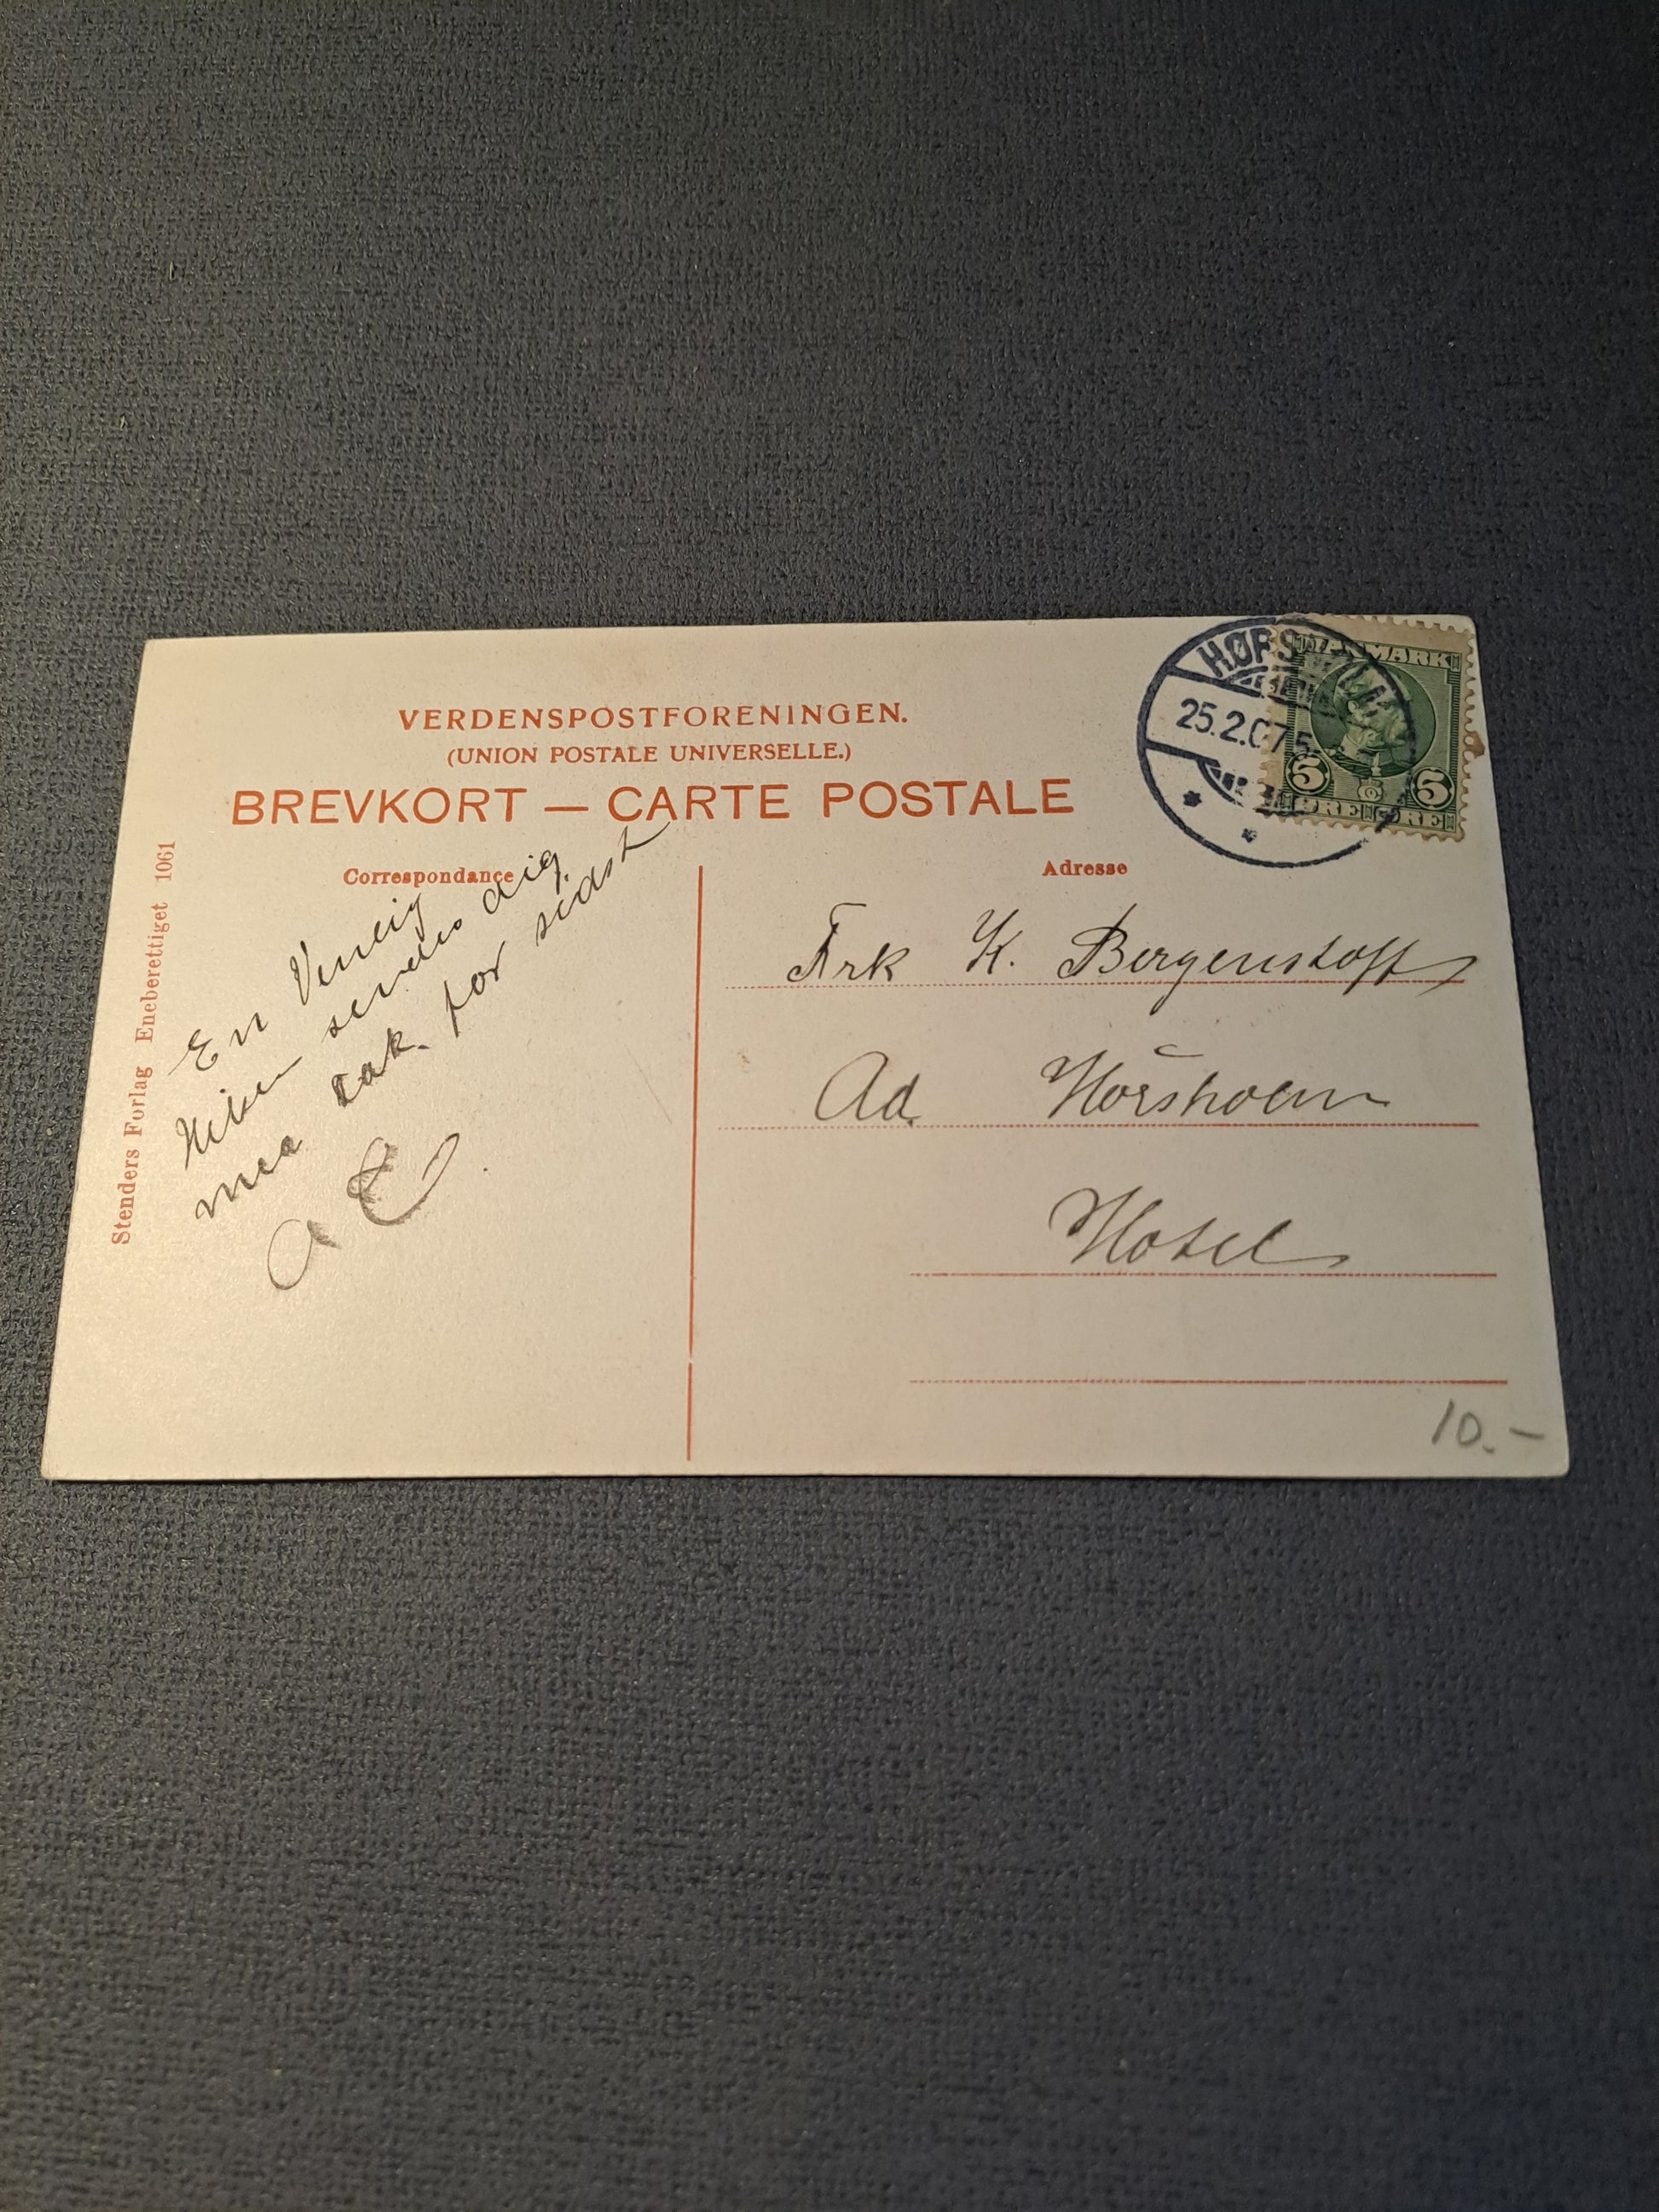 VERDENSPOSTFORENINGEN.
(UNION POSTALE UNIVERSELLE.)
BREVKORT — CARTE POSTALE
Correspondance
Adresse
Stenders Forlag Eneberettiget 1061
En Venlig
Hilsen sendes dig
med tak for sidst
A E
Frk K. Bergenstoff
Ad Hörsholm
Hotel
10.-
HØRSHOLM
25.2.07 5
DANMARK
5 5
ØRE ØRE